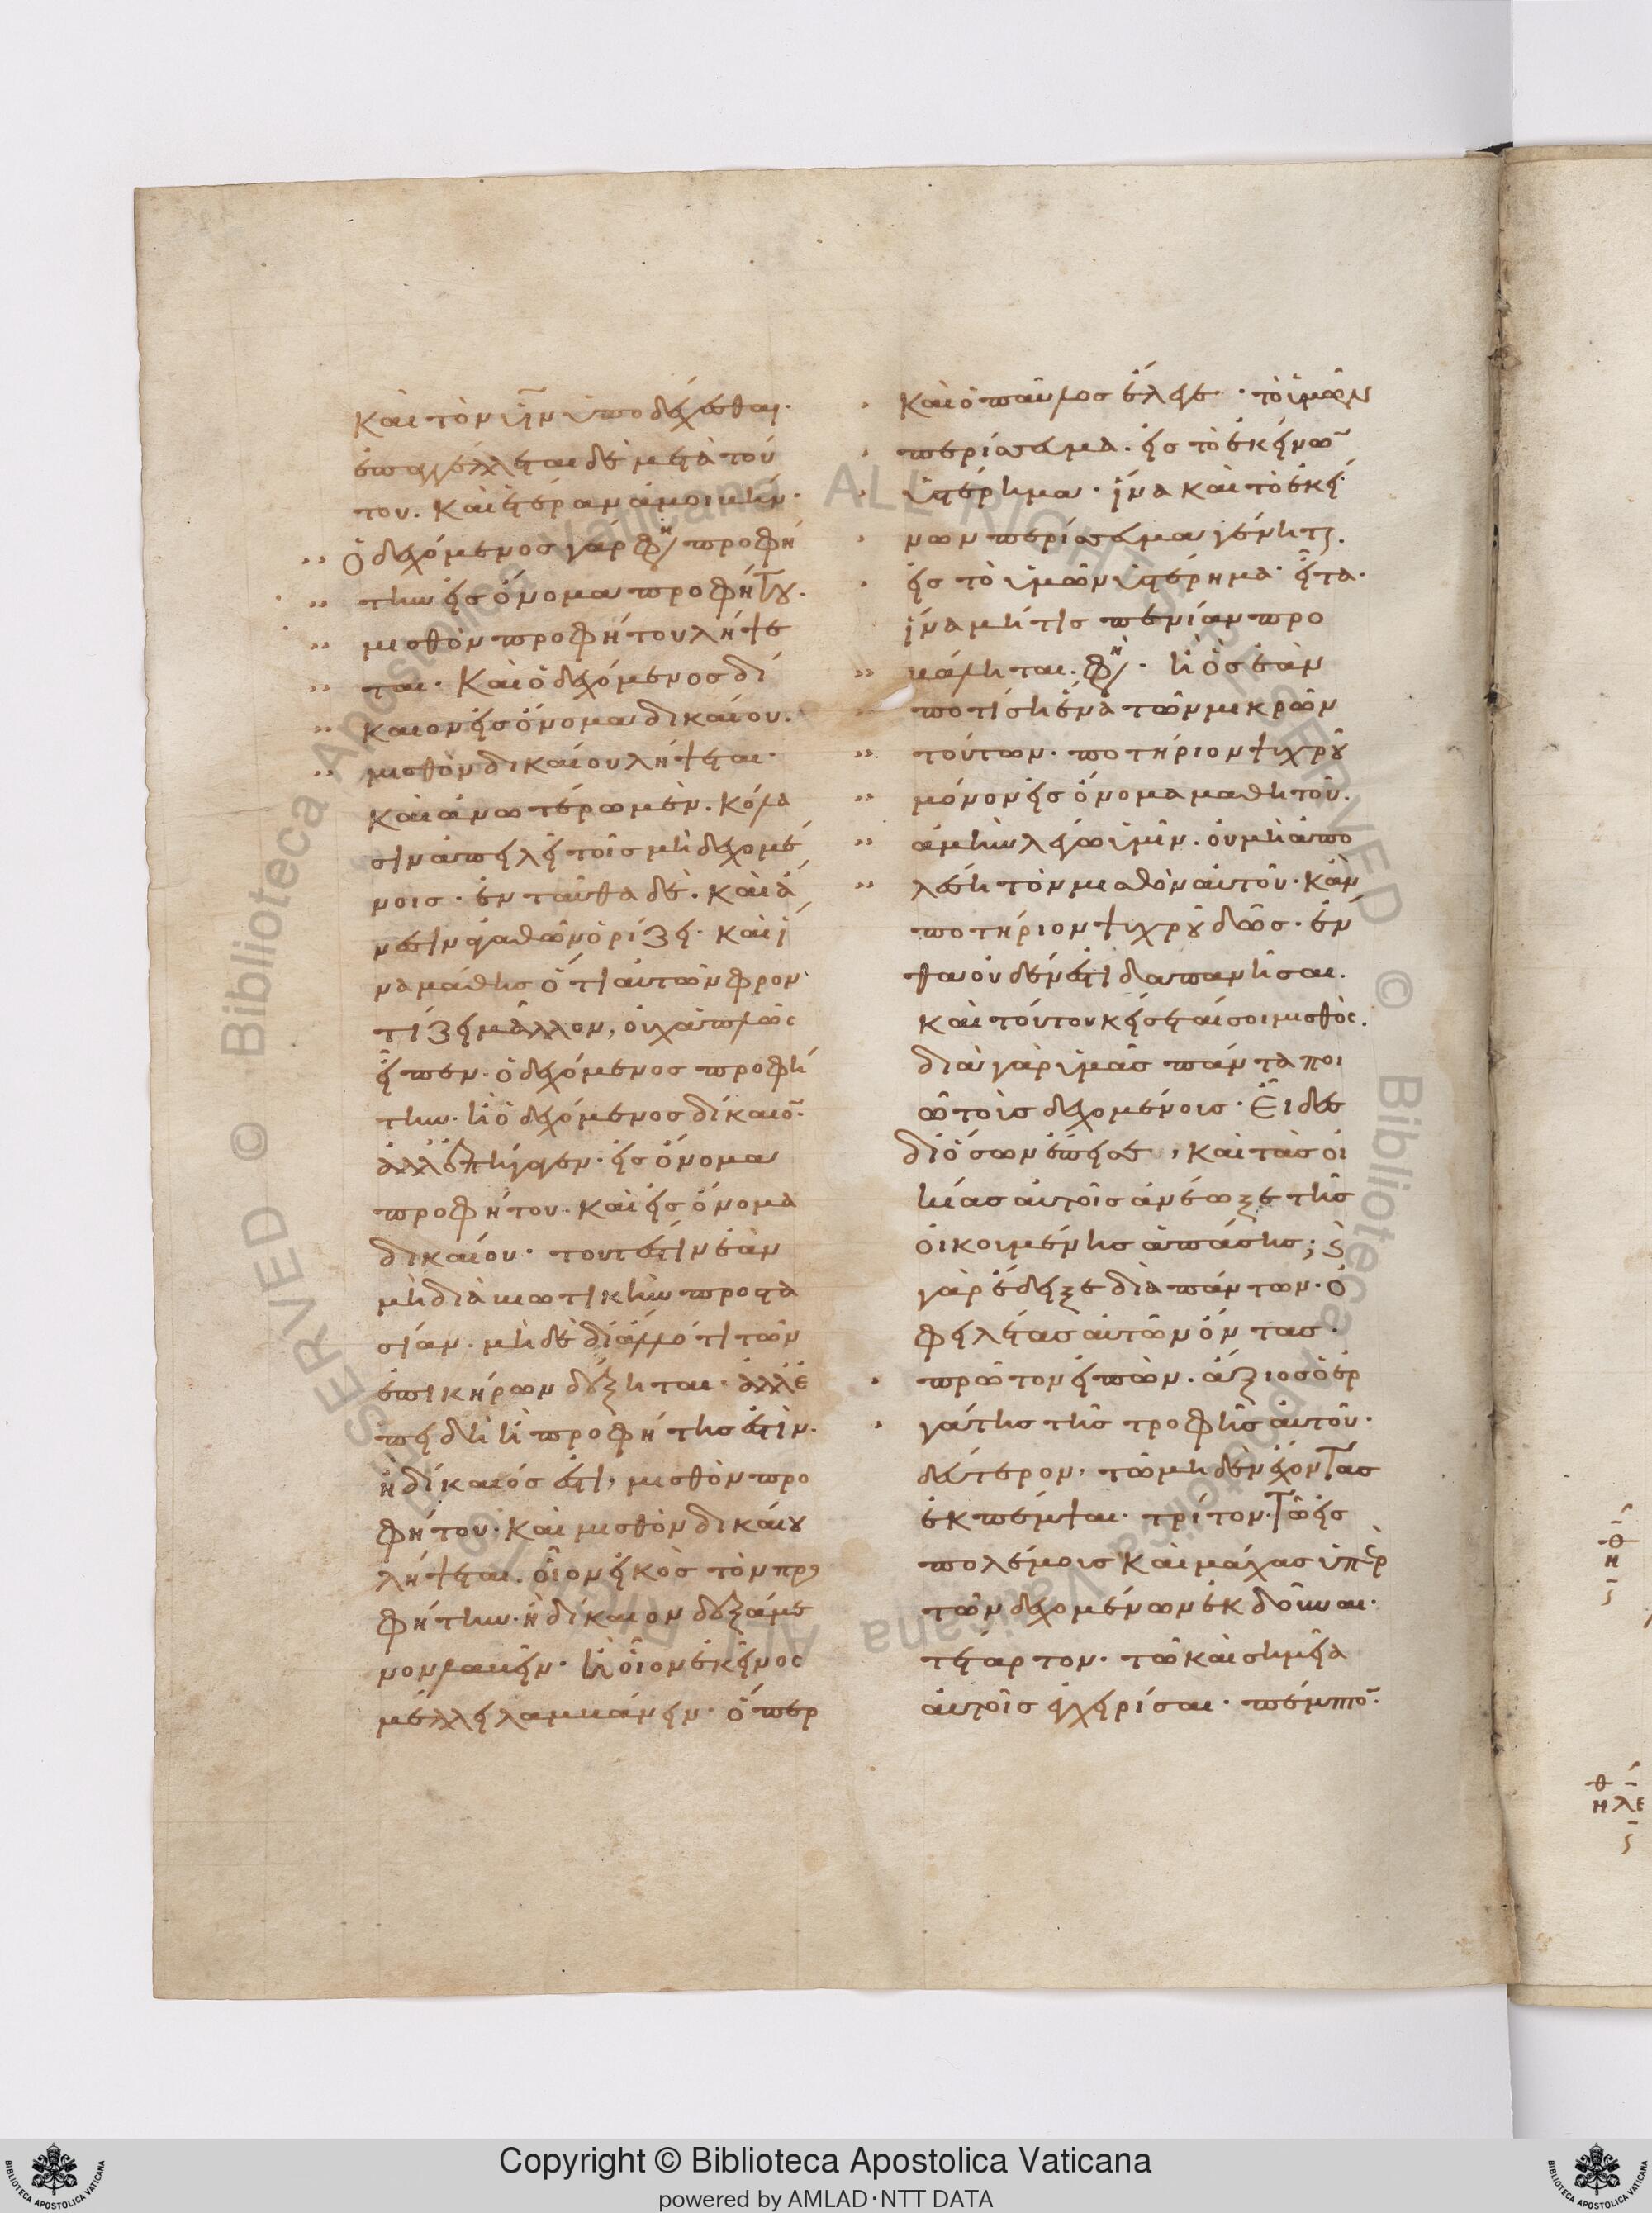 καὶ τὸν υἱὸν ὑποδέχεσθαι·
ἐπαγγέλλεται δὲ μετὰ τού
του. καὶ ἑτέραν ἀμοιβήν·
ὁ δεχόμενος γάρ φη προφή
την εἰς ὄνομα προφήτου.
μισθὸν προφήτου λήψε
ται· καὶ ὁ δεχόμενος δί
καιον εἰς ὄνομα δικαίου.
μισθὸν δικαίου λήψεται·
καὶ ἀνωτέρω μὲν. κόλα
σιν ἀπειλεῖ τοῖς μὴ δεχομέ
νοις· ἐνταῦθα δὲ. καὶ ἄ
νεσιν ἀγαθῶν ὁρίζει· καὶ ἵ
να μάθης ὅτι αὐτῶν φρον
τίζει μᾶλλον, οὐχ ἁπλῶς
εἶπεν· ὁ δεχόμενος προφή
την· ἢ ὁ δεχόμενος δίκαιον·
ἀλλ' ἐπήγαγεν· εἰς ὄνομα
προφήτου· καὶ εἰς ὄνομα
δικαίου· τουτέστιν ἐὰν
μὴ διὰ βιωτικὴν προστα
σίαν· μὴ δὲ δι' ἄλλό τι τῶν
ἐπικήρων δέξηται· ἀλλ' ἐ
πειδὴ ἢ προφήτης ἐστὶν·
ἢ δίκαιός ἐστι, μισθὸν προ
φήτου· καὶ μισθὸν δικαίου
λήψεται. οἷον εἰκὸς τὸν προ
φήτην· ἢ δίκαιον δεξάμε
νον λαβεῖν· ἢ οἷον ἐκεῖνος
μέλλει λαμβάνειν· ὅπερ
καὶ ὁ παῦλος ἔλεγε· τὸ ὑμῶν
περίσσευμα. εἰς τὸ ἐκείνων
ὑστέρημα· ἵνα καὶ τὸ ἐκεί
νων περίσσευμα γένηται.
εἰς τὸ ὑμῶν ὑστέρημα· εἶτα·
ἵνα μή τις πενίαν προ
βάληται. φη· ἢ ὃς ἐὰν
ποτίση ἕνα τῶν μικρῶν
τούτων· ποτήριον ψυχροῦ
μόνον εἰς ὄνομα μαθητοῦ.
ἀμὴν λέγω ὑμῖν. οὐ μὴ ἀπο
λέση τὸν μισθὸν αὐτοῦ· κἂν
ποτήριον ψυχροῦ δῶς· ἔν
θα οὐδέν ἐστι δαπανῆσαι.
καὶ τούτου κείσεταί σοι μισθὸς.
διὰ γὰρ ὑμᾶς πάντα ποι
ῶ τοὺς δεχομένους· Εἶδες
δι' ὅσων ἔπεισε, καὶ τὰς οἰ
κίας αὐτοῖς ἀνέωξε τῆς
οἰκουμένης ἁπάσης; καὶ
γὰρ ἔδειξε διὰ πάντων· ὀ
φειλέτας αὐτῶν ὄντας·
πρῶτον εἰπὼν. ἄξιος ὁ ἐρ
γάτης τῆς τροφῆς αὐτοῦ·
δεύτερον, τῶ μηδὲν ἔχοντας
ἐκπέμψαι· τρίτον· τῶ εἰς
πολέμους καὶ μάχας ὑπὲρ
τῶν δεχομένων ἐκδοῦναι·
τέταρτον· τῶ καὶ σημεῖα
αὐτοῖς ἐγχειρίσαι· πέμπτον·
Copyright © Biblioteca Apostolica Vaticana
powered by AMLAD·NTT DATA